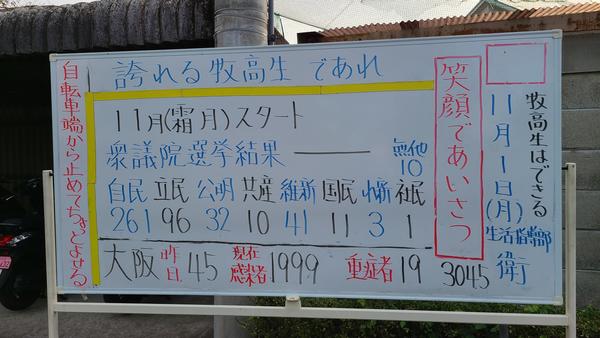 誇れる牧高生であれ
牧高生はできる
11月1日(月)
生活指導部
衛
笑顔であいさつ
11月(霜月)スタート
衆議院選挙結果
無他
10
自民 立民 公明 共産 維新 国民 れ新 社民
261 96 32 10 41 11 3 1
大阪 昨日 45 現在感染者 1999 重症者 19 3045
自転車端から止めてちょっとよせる